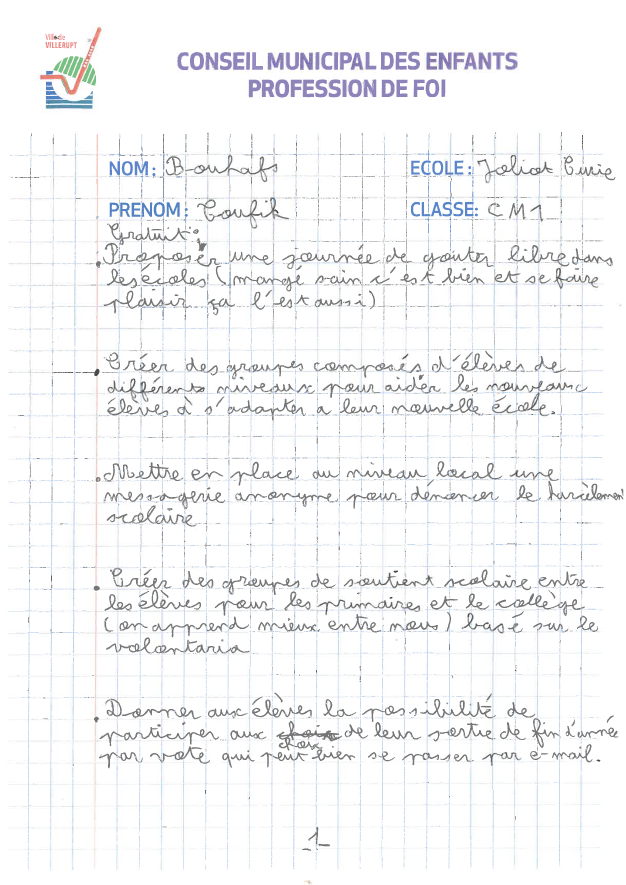 Ville de
VILLERUPT
CONSEIL MUNICIPAL DES ENFANTS
PROFESSION DE FOI
NOM: Bouhafs ECOLE: Joliot Curie
PRENOM: Toufik CLASSE: CM1
Gratuit:
. Proposer une journée de gouter libre dans
les écoles (mangé sain c'est bien et se faire
plaisir ça l'est aussi)
. Créer des groupes composés d'élèves de
différents niveaux pour aider les nouveaux
élèves à s'adapter a leur nouvelle école.
. Mettre en place au niveau local une
messagerie anonyme pour dénoncer le harcèlement
scolaire
. Créer des groupes de soutient scolaire entre
les élèves pour les primaires et le collège
(on apprend mieux entre nous) basé sur le
volontaria
. Donner aux élèves la possibilité de
participer aux choix de leur sortie de fin d'année
par vote qui peut bien se passer par e-mail.
1